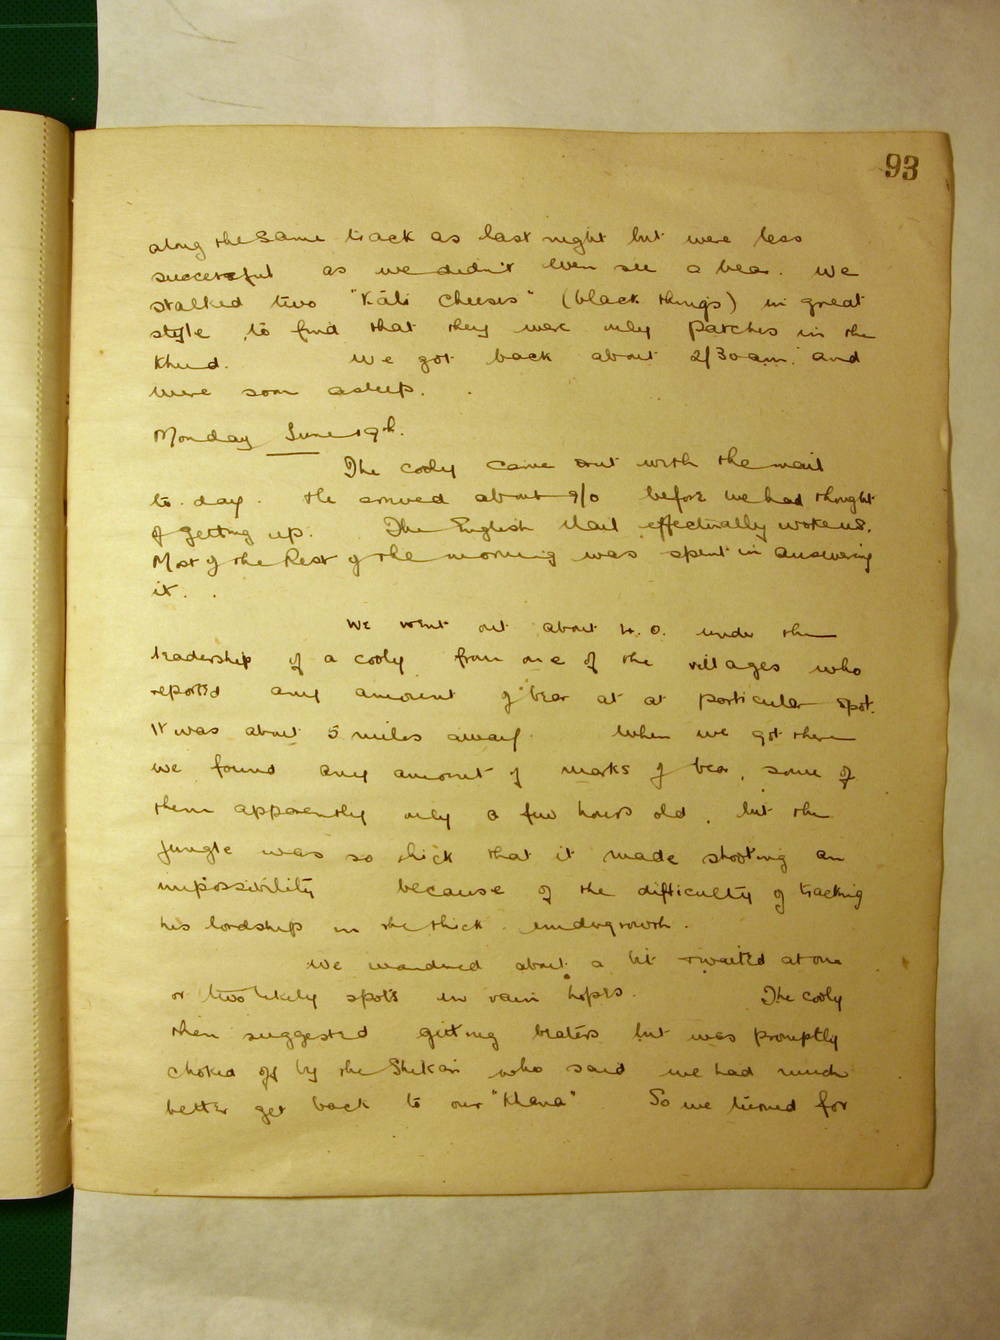 93
along the same track as last night but were less
successful as we didn't even see a bear. We
stalked two "Kali Cheeses" (black things) in great
style to find that they were only patches in the
Khud. We got back about 2/30 am. and
were soon asleep.
Monday June 19th.
The cooly came out with the mail
to day. He arrived about 9/0 before we had thought
of getting up. The English Mail effectually woke us.
Most of the Rest of the morning was spent in answering
it.
We went out about 4.0. under the
leadership of a cooly from one of the villages who
reported any amount of bear at at particular spot.
It was about 5 miles away. When we got there
we found any amount of marks of bear, some of
them apparently only a few hours old, but the
jungle was so thick that it made shooting an
impossibility because of the difficulty of tracking
his lordship in the thick undergrowth.
We wandered about a bit + waited at one
or two likely spots in vain hopes. The cooly
then suggested getting beaters but was promptly
choked off by the Shikari who said we had much
better get back to our "Khana" So we turned for